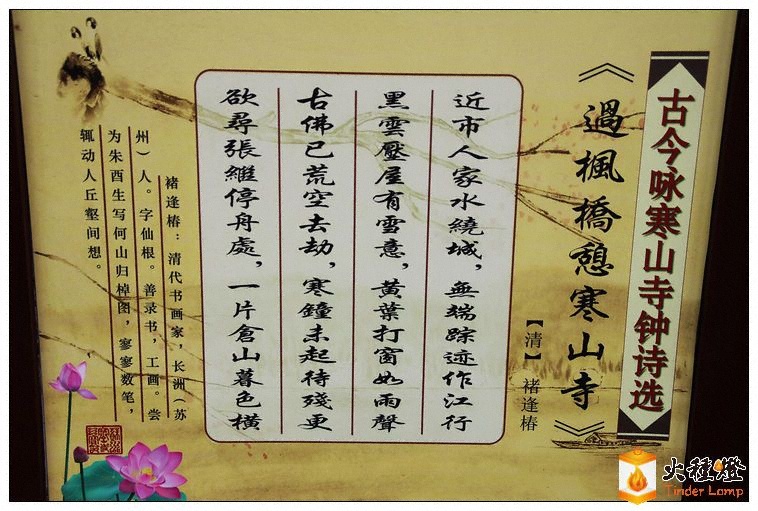 古今咏寒山寺钟诗选
《過楓橋憩寒山寺》
【清】褚逢椿
近市人家水繞城，無端踪迹作江行
黑雲壓屋有雪意，黄葉打窗如雨聲
古佛已荒空去劫，寒鐘未起待殘更
欲尋張繼停舟處，一片倉山暮色橫
褚逢椿：清代书画家，长洲（苏
州）人。字仙根。善录书，工画。尝
为朱酉生写何山归棹图，寥寥数笔，
辄动人丘壑间想。
火種燈
Tinder Lamp